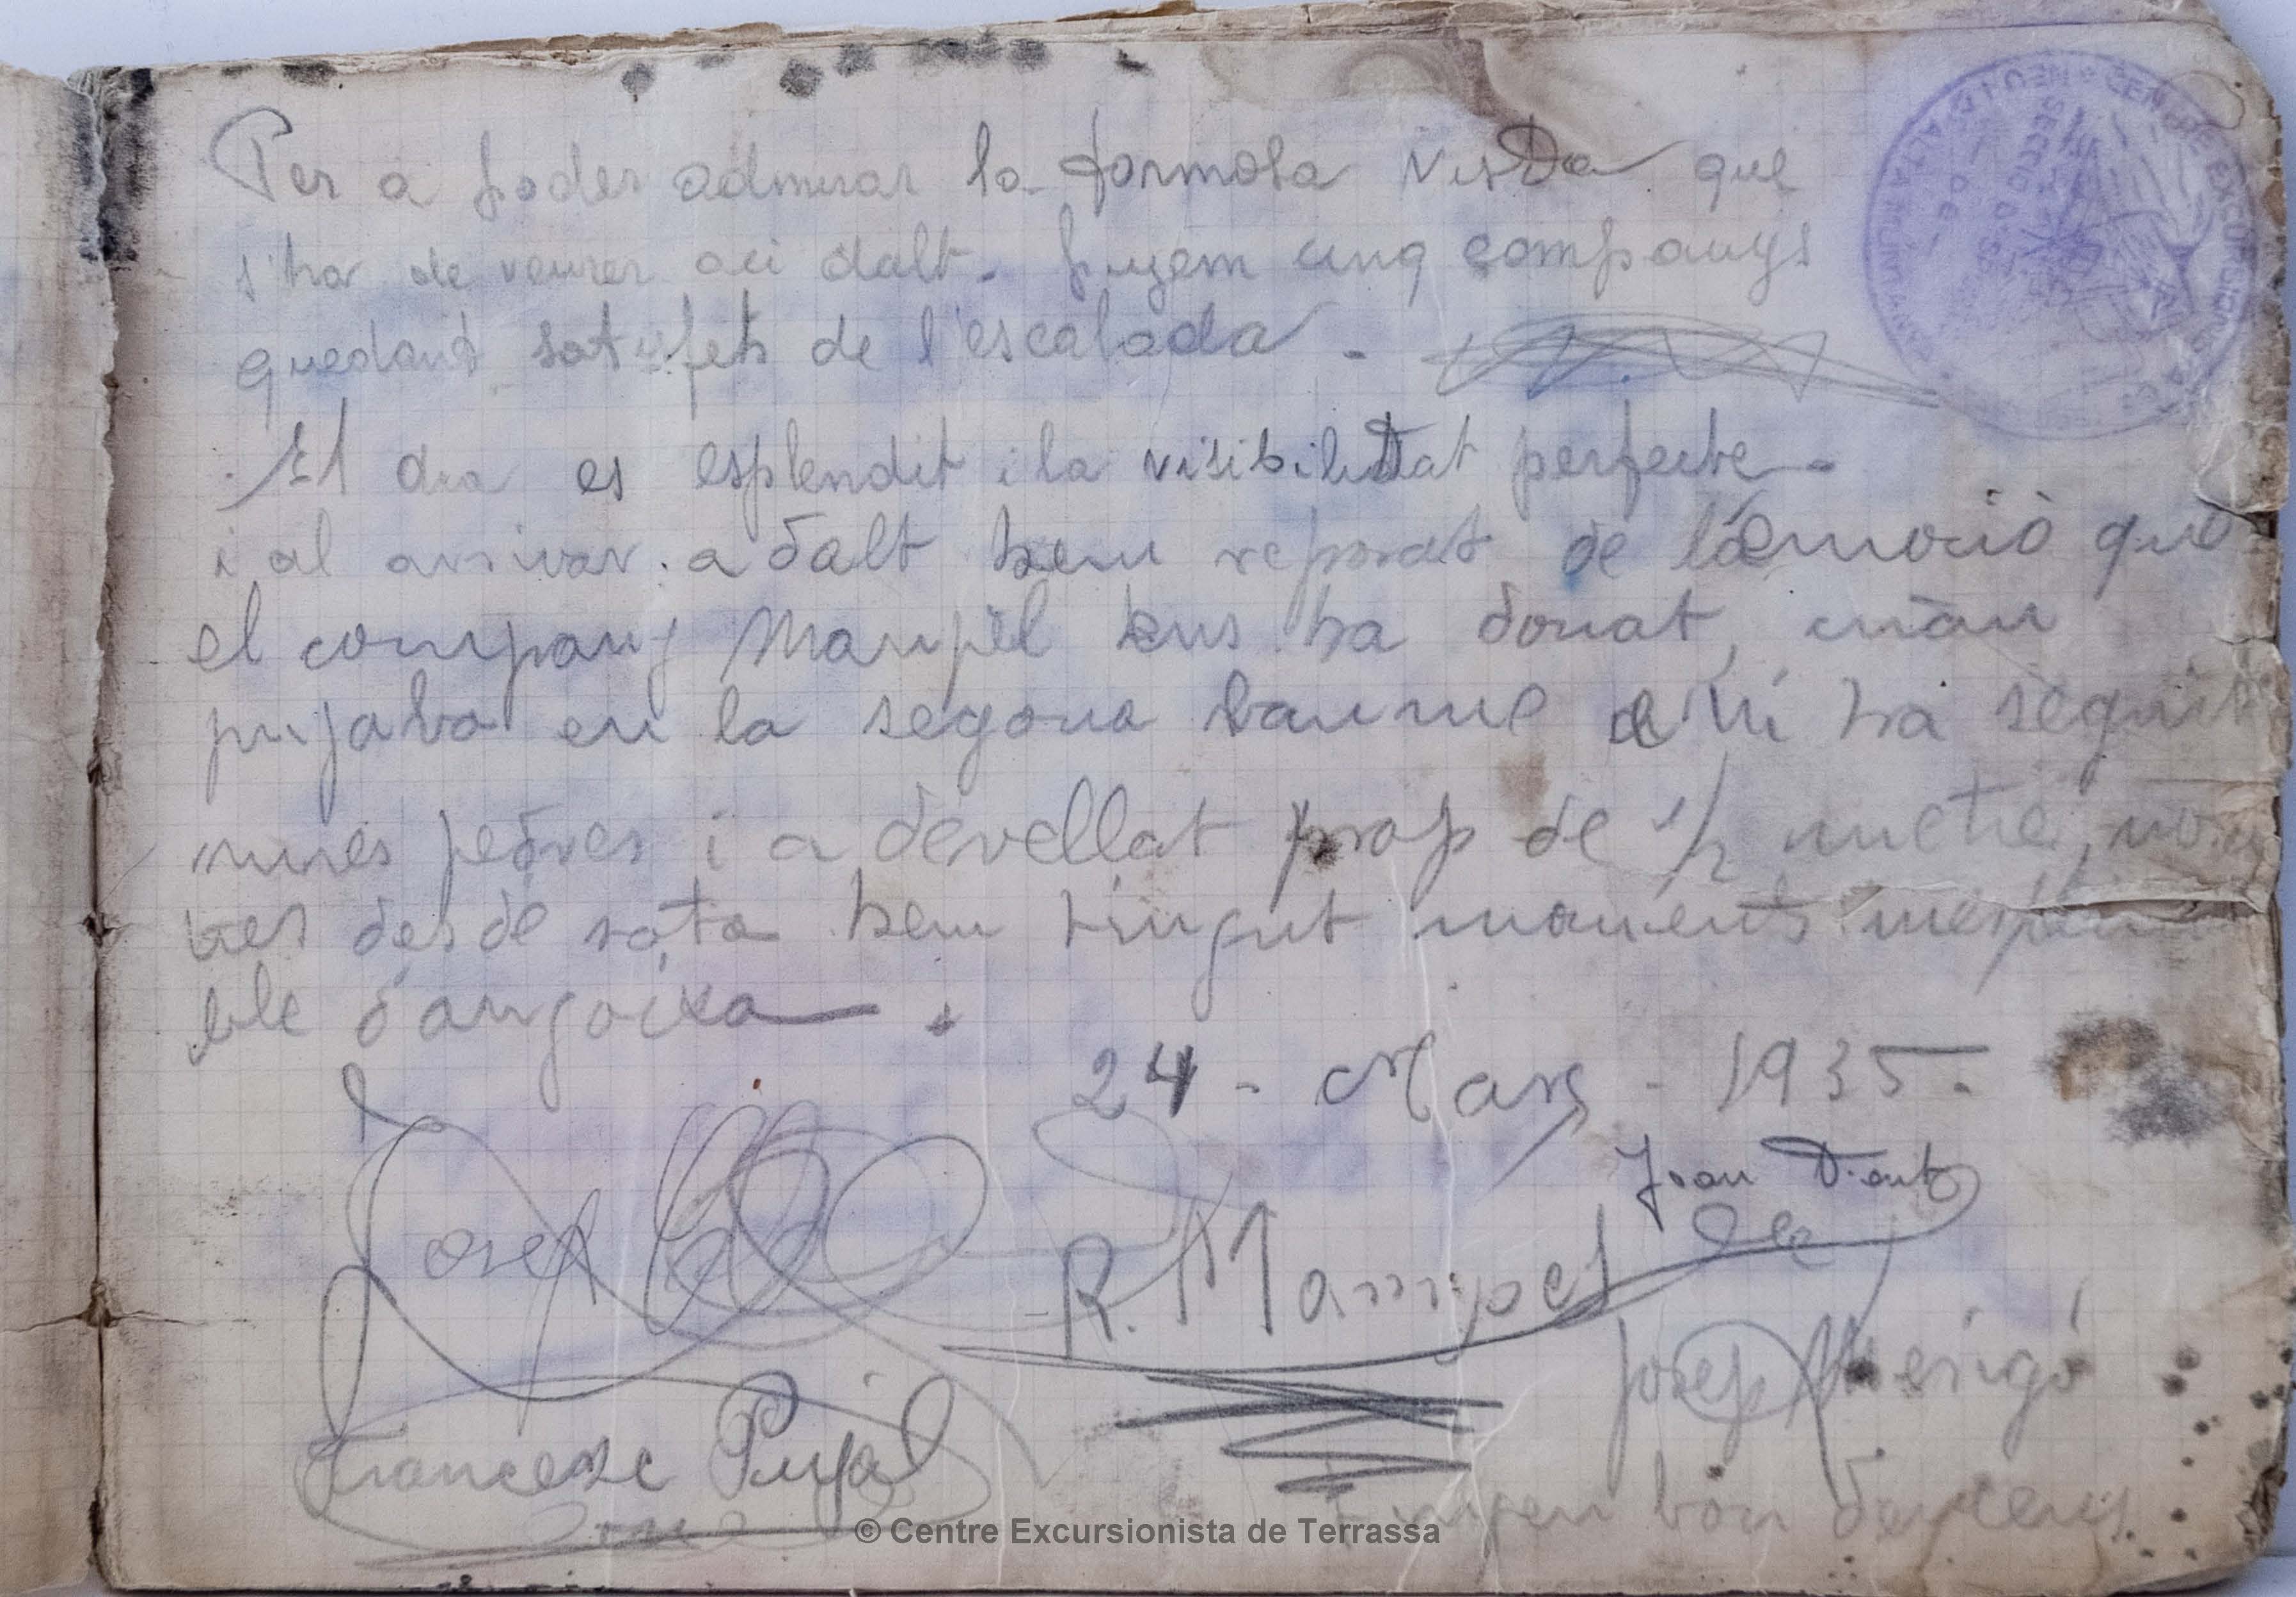 Per a poder admirar la formosa vista que
s'ha de veurer aci dalt. pugem cinq companys
quedant satisfets de l'escalada.
El dia es esplendit i la visibilitat perfecte.
i al arrivar a dalt hem reposat de l'emoció que
el company Mampèl ens ha donat, cuan
pujaba en la segona baume
unes pedres i a devellat prop de 1/2 metre,
des de sota hem tingut moments
ble d'angoixa.
24 - Mars - 1935.
Joan
Josep
R. Mampel
Josep Mengó
Francesc Pujol
Tinguen bon
CENTRE EXCURSIONISTA
© Centre Excursionista de Terrassa